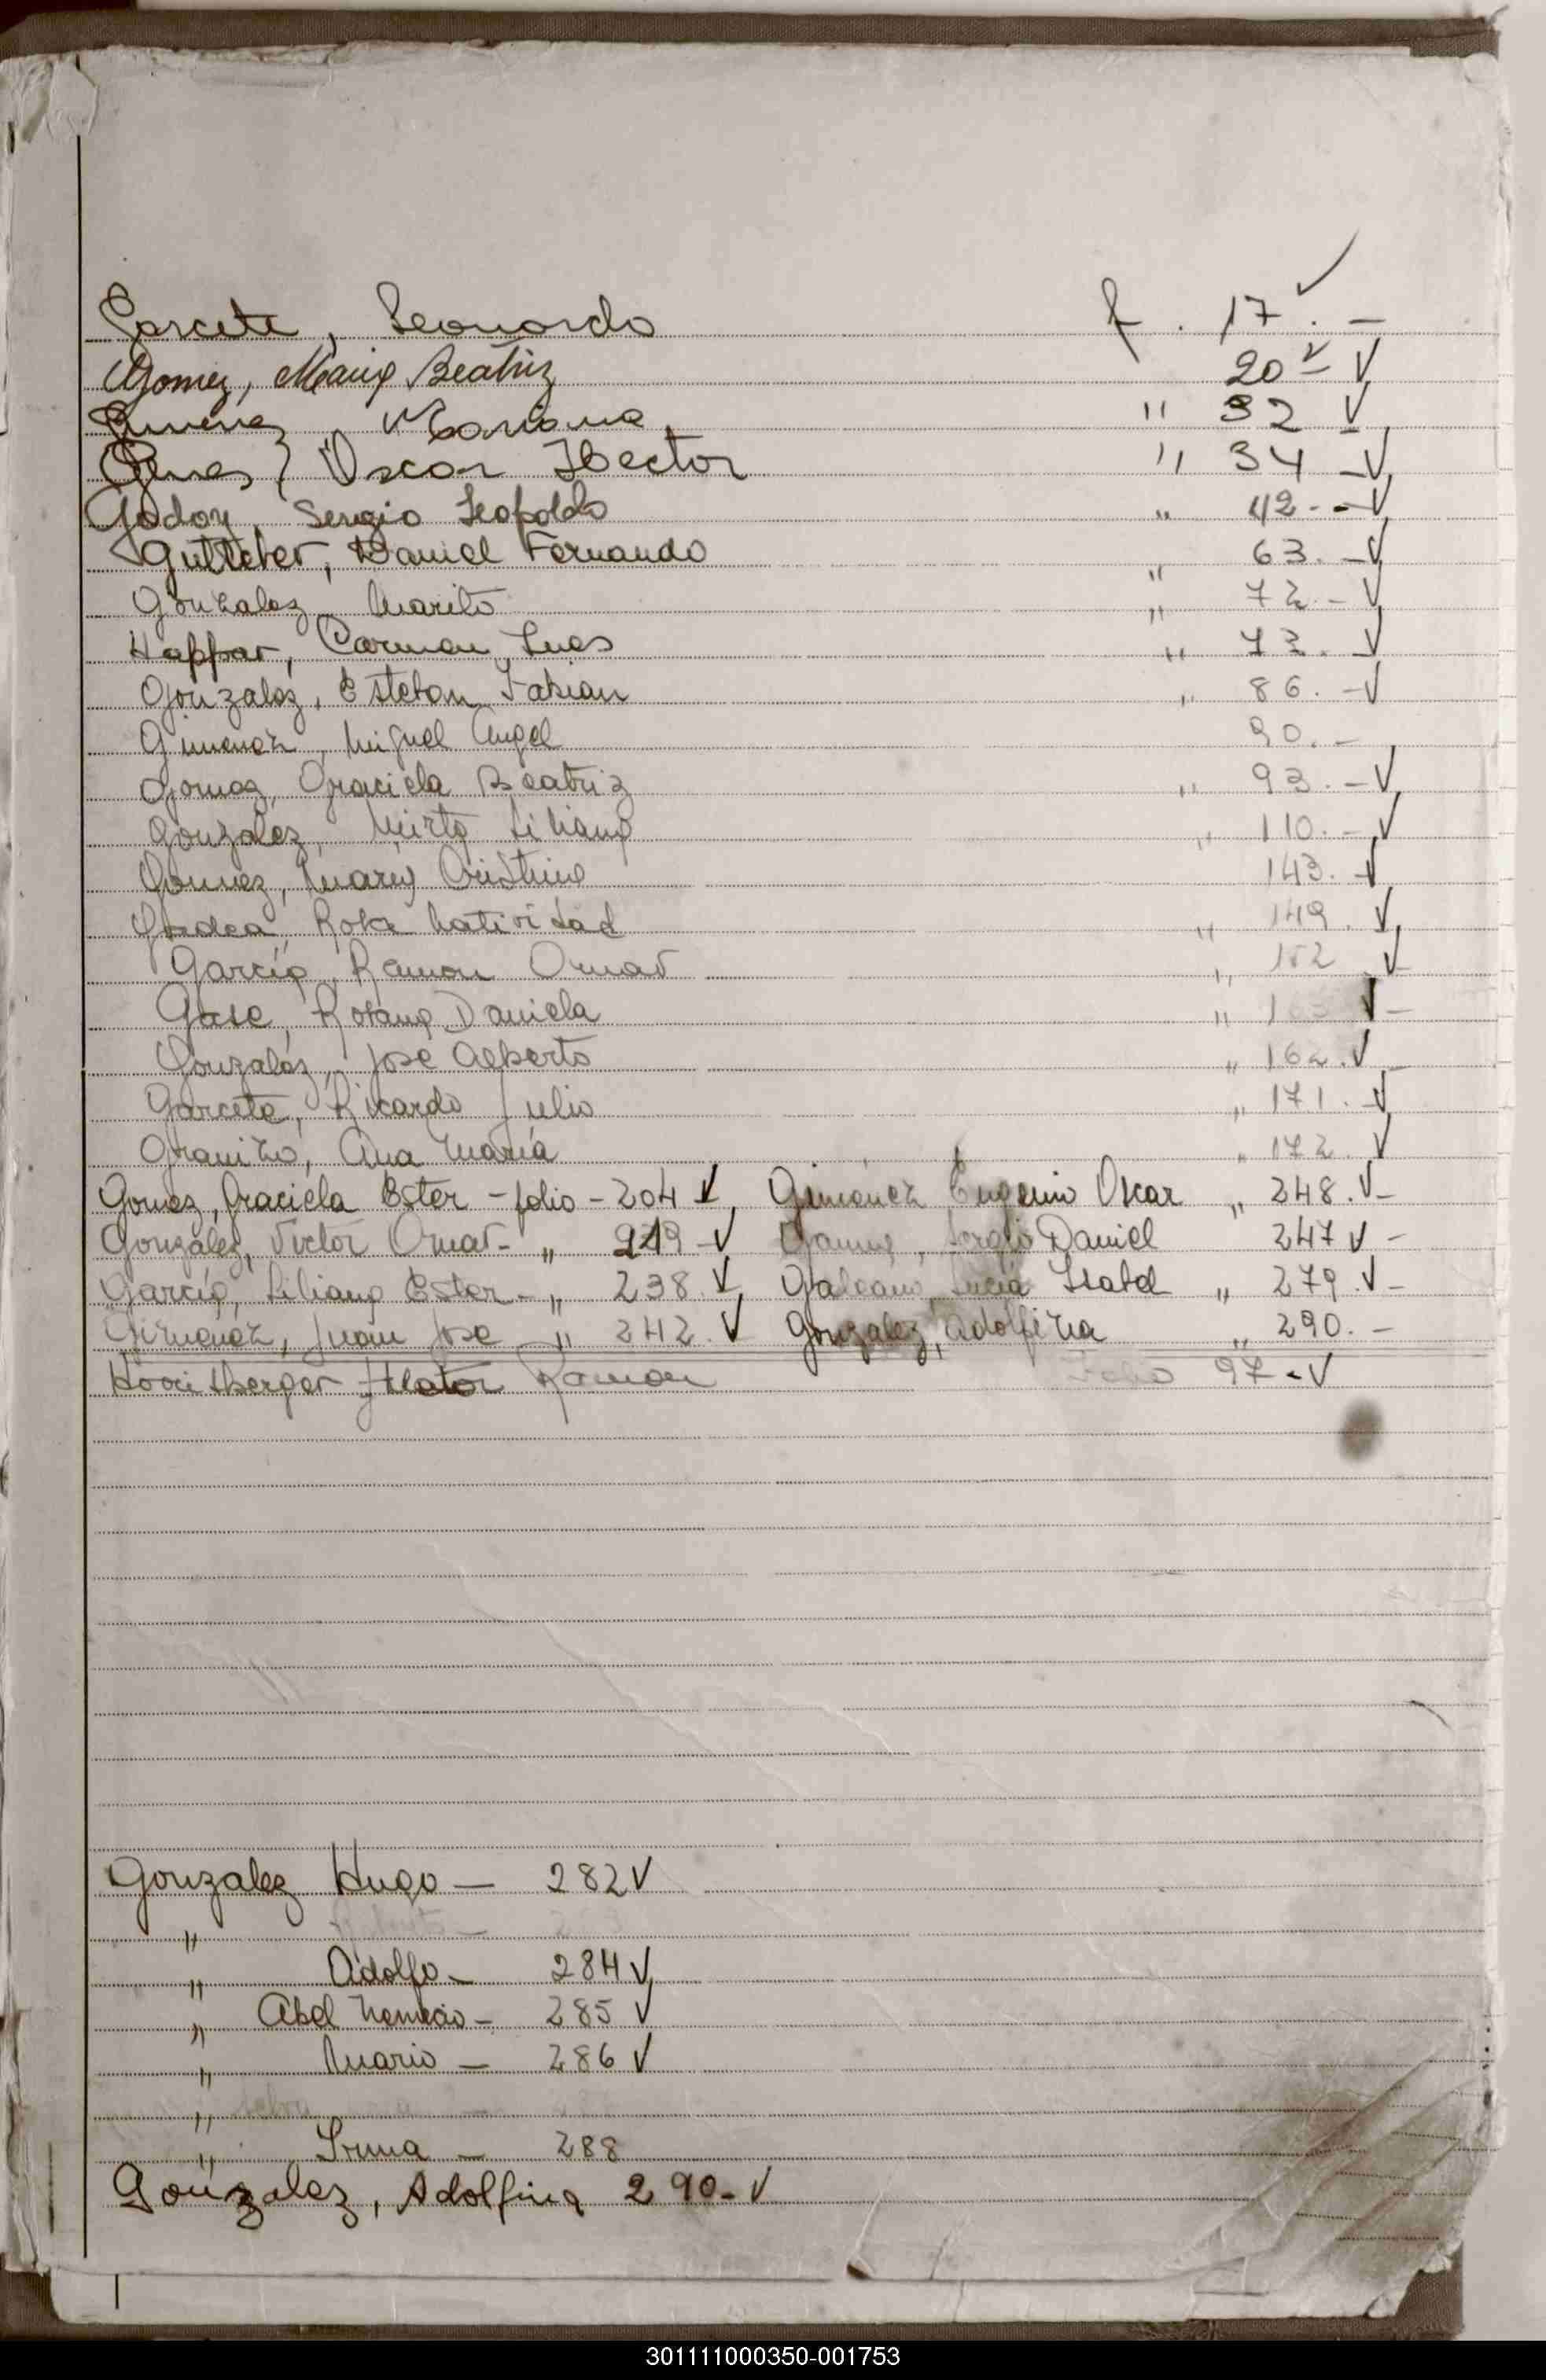 Garcete, Leonardo f. 17. -
Gomez, Maria Beatriz 20 -
Gimenez Mariana " 32
Genes, Oscar Hector " 34 -
Godoy, Sergio Leopoldo " 42. -
Daniel Fernando " 63. -
Gonzalez Marito " 72. -
Carmen Ines " 73.
Gonzalez, Esteban Fabian " 86. -
Gimenez, Miguel Angel 90. -
Gomez, Graciela Beatriz " 93. -
Gonzalez, Mirta Liliana " 110. -
Gomez, Maria Cristina 143. -
Natividad " 149.
Garcia, Ramon Omar " 152
Daniela " -
Gonzalez, José Alberto " 162.
Garcete, Ricardo Julio " 171. -
Ana María " 172.
Gomez, Graciela Ester - folio - 204 Gimenez Eugenio Oscar " 248. -
González, Victor Omar - " 219 - Sergio Daniel 247 -
García, Liliana Ester - " 238. Galeano, Lucia Isabel " 279. -
Gimenéz, Juan Jose " 242. Gonzalez, Adolfina " 290. -
Ramon Folio 97 -
Gonzalez Hugo - 282
"
" Adolfo - 284
" Abel Nemecio - 285
" Mario - 286
"
" Irma - 288
Gonzalez, Adolfina 290 -
301111000350-001753